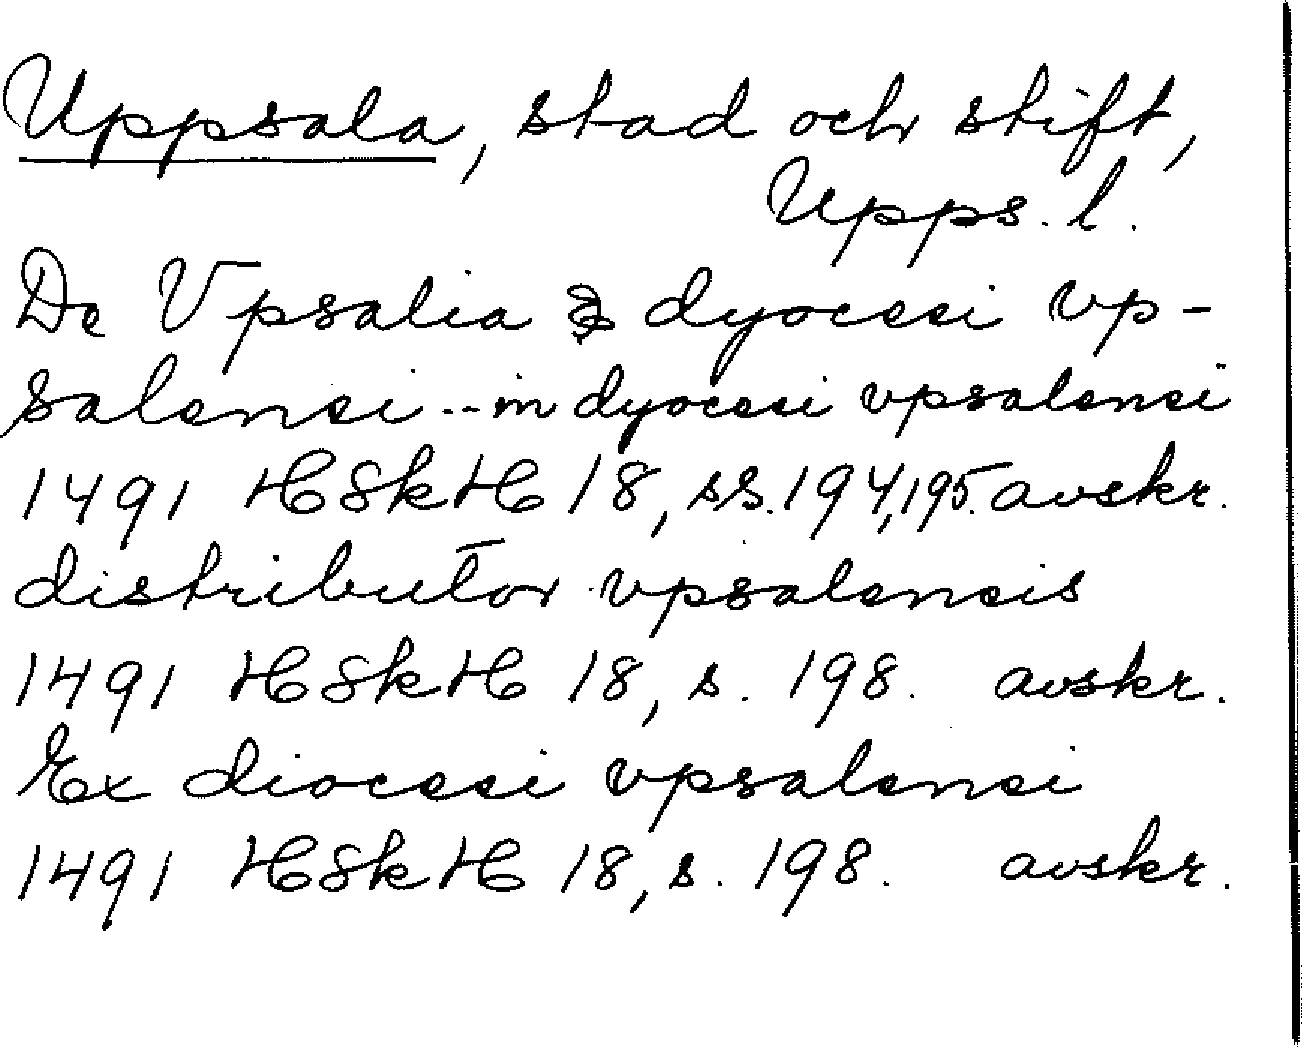 Uppsala, stad och stift,
Upps. l.
De Vpsalia & dyocesi vp-
salensi -- in dyocesi vpsalensi
1491 HSkH 18, ss. 194, 195. avskr.
distributor vpsalensis
1491 HSkH 18, s. 198. avskr.
Ex diocesi vpsalensi
1491 HSkH 18, s. 198. avskr.